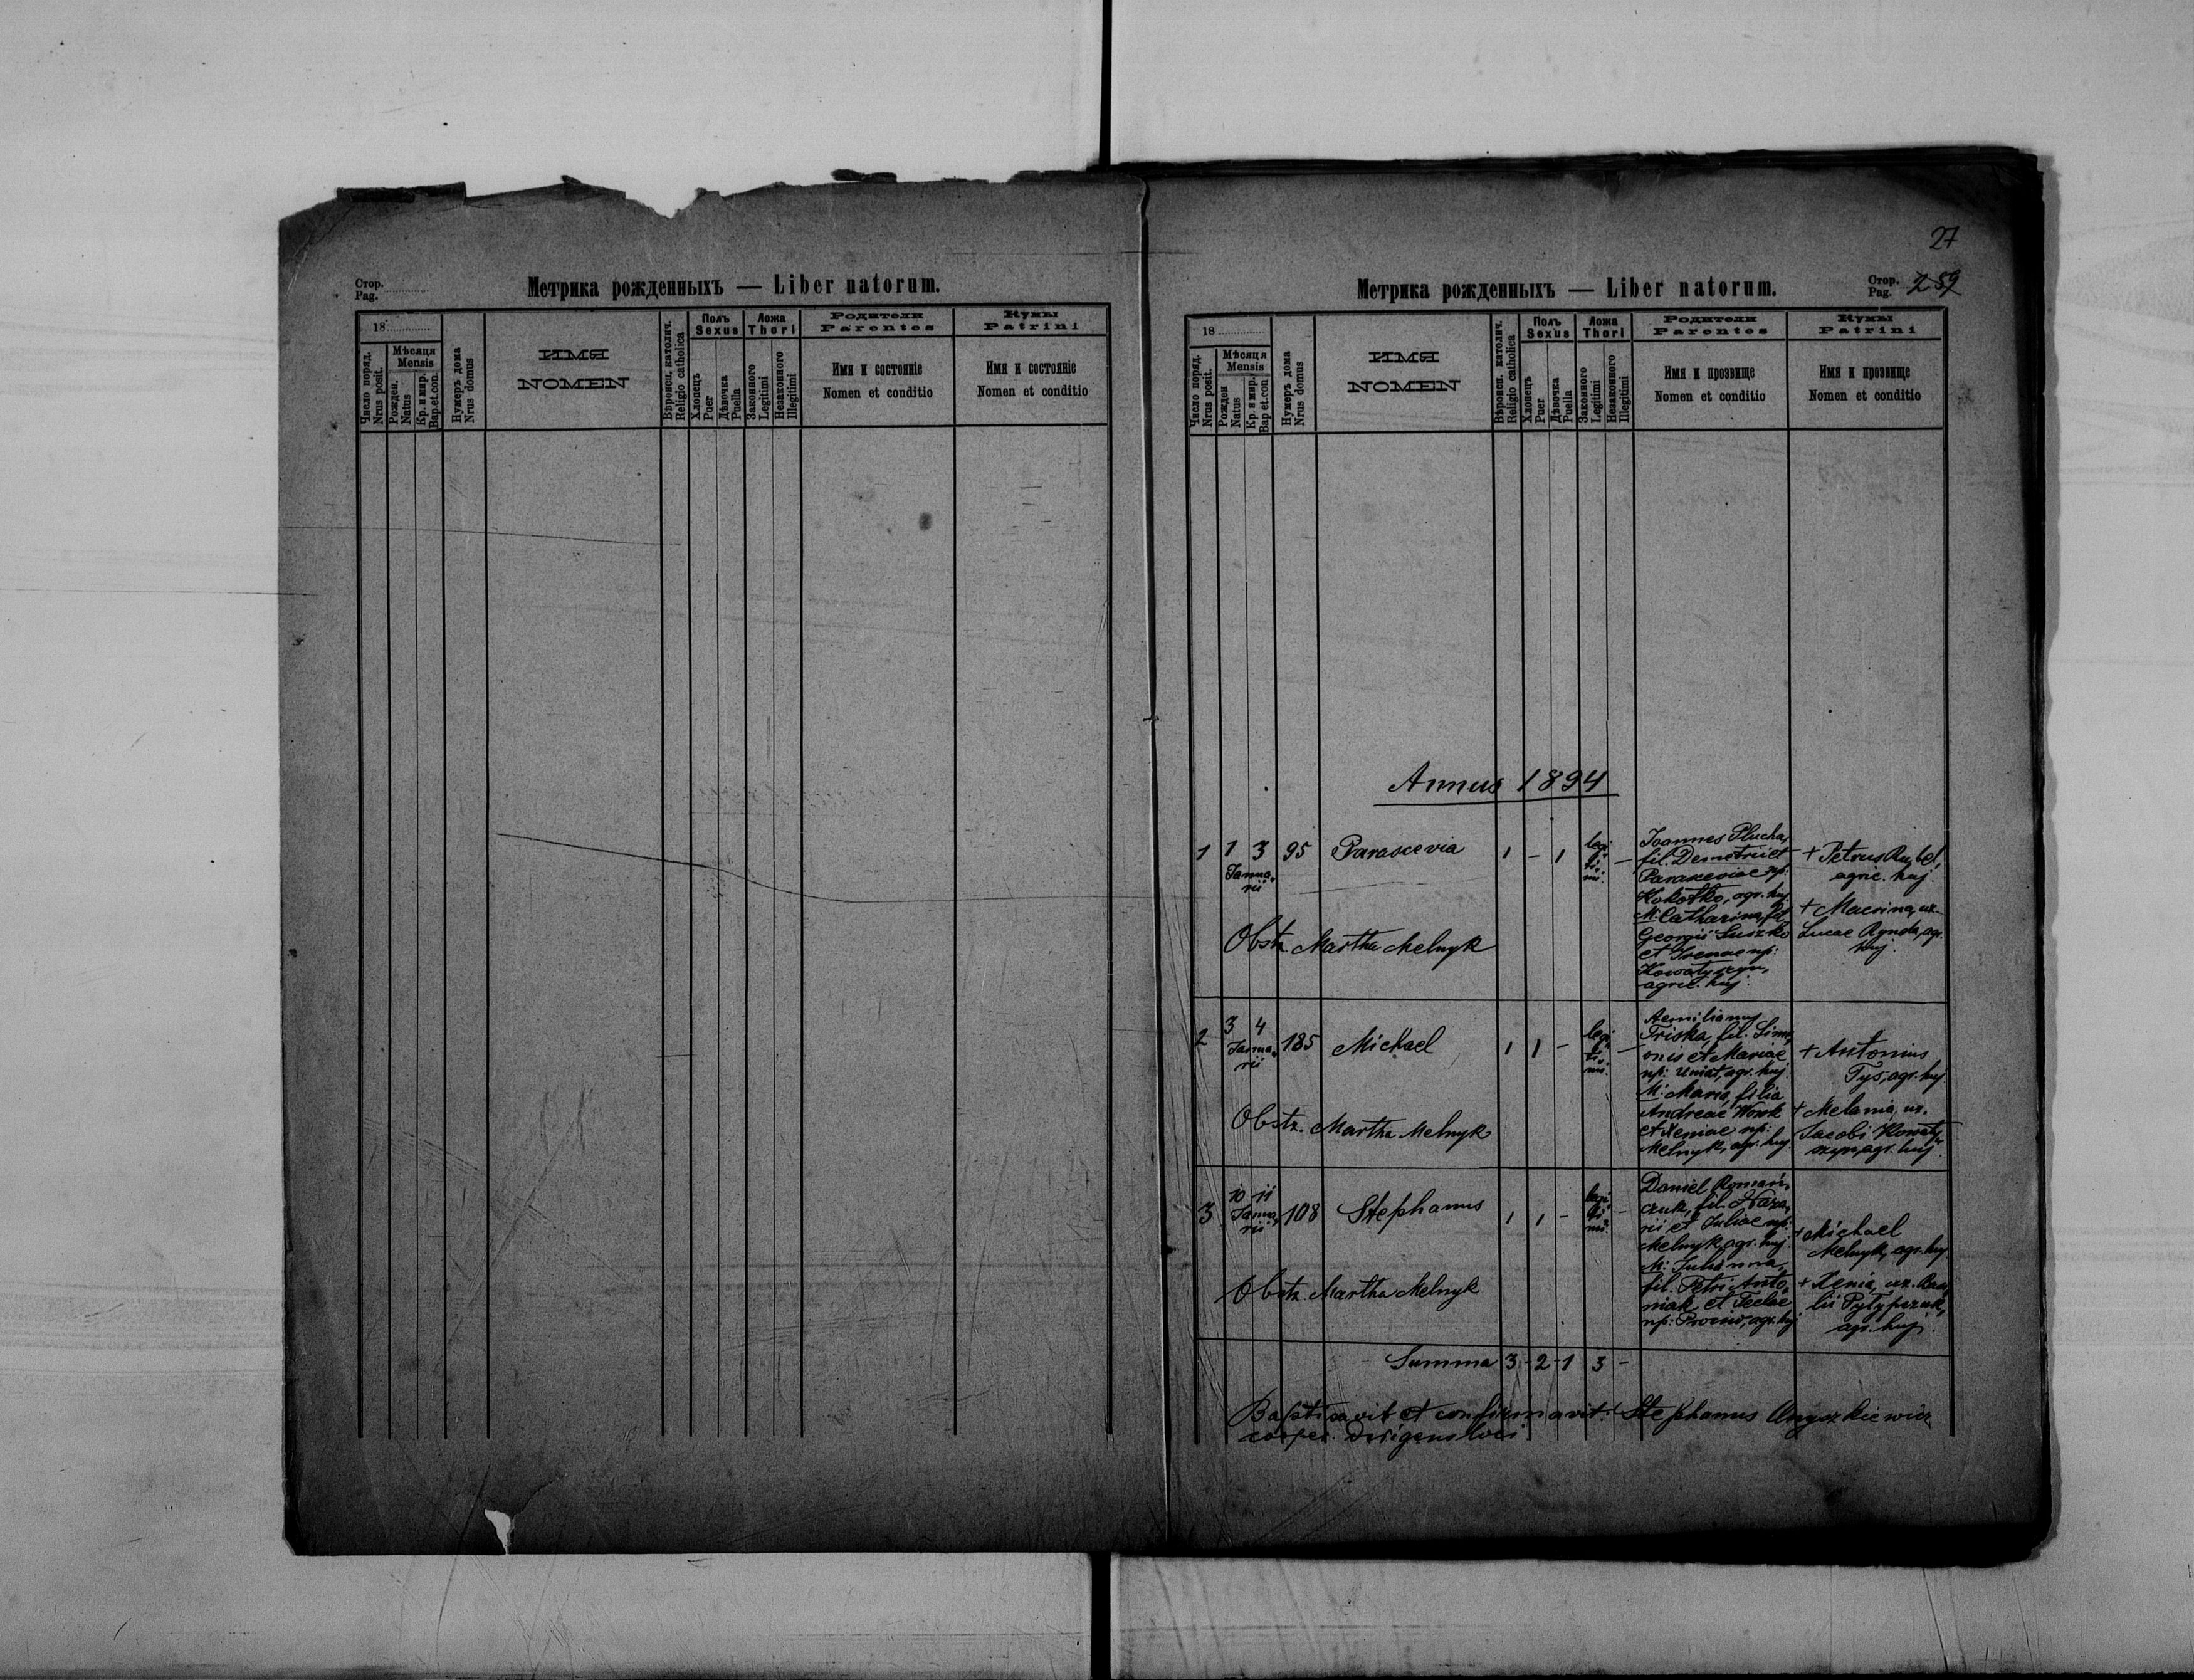 Стор.
Pag.
Метрика рожденныхъ — Liber natorum.
18
Число поряд.
Nrus posit.
Мѣсяця
Mensis
Рожден.
Natus
Кр. и мир.
Bap.et.con.
Нумеръ дома
Nrus domus
ИМЯ
NOMEN
Вѣроисп. католич.
Religio catholica
Полъ
Sexus
Хлопецъ
Puer
Дѣвочка
Puella
Ложа
Thori
Законного
Legitimi
Незаконного
Illegitimi
Родители
Parentes
Имя и состояніе
Nomen et conditio
Кумы
Patrini
Имя и состояніе
Nomen et conditio
27
Метрика рожденныхъ — Liber natorum.
Стор.
Pag. 259
18
Число поряд.
Nrus posit.
Мѣсяця
Mensis
Рожден
Natus
Кр. и мир.
Bap et.con
Нумеръ дома
Nrus domus
ИМЯ
NOMEN
Вѣроисп. католич.
Religio catholica
Полъ
Sexus
Хлопецъ
Puer
Дѣвочка
Puella
Ложа
Thori
Законного
Legitimi
Незаконного
Illegitimi
Родители
Parentes
Имя и прозвище
Nomen et conditio
Кумы
Patrini
Имя и прозвище
Nomen et conditio
Annus 1894
1 1 3 95 Parascevia 1 - 1 legi-
Janua-
rii
ti-
mi. -
Joannes Plucha,
fil. Demetrii et
Parasceviae np:
agr. huj.
M: Catharina, fil.
Georgii Luszko
et Irenae np:
Kowałyszyn,
agric. huj.
+ Petrus
agric. huj.
+ Macrina, ux.
Lucae Rynda, agr.
huj.
Obstr. Martha Melnyk
2 3 4 185 Michael 1 1 - legi-
Janua-
rii
ti-
mi. -
Aemilianus
Triska, fil. Sime-
onis et Mariae
np: Uniat, agr. huj.
M: Maria, filia
Andreae Worok
et Xeniae np:
Melnyk, agr. huj.
+ Antonius
Tys, agr. huj
+ Melania, ux.
Jacobi Kowały-
szyn, agr. huj.
Obstr. Martha Melnyk
3 10 11 108 Stephanus 1 1 - legi-
Janua-
rii
ti-
mi. -
Daniel Romań-
czuk, fil. Naza-
rii et Juliae np:
Melnyk, agr. huj.
M: Julianna,
fil. Petri Anto-
niak et Teclae
np: agr. huj
+ Michael
Melnyk, agr. huj.
+ Xenia, ux. Basi-
lii
agr. huj.
Obstr. Martha Melnyk
Summa 3 - 2 - 1 3 -
Baptisavit et confirmavit: Stephanus Onyszkiewicz
cooper. dirigens loci